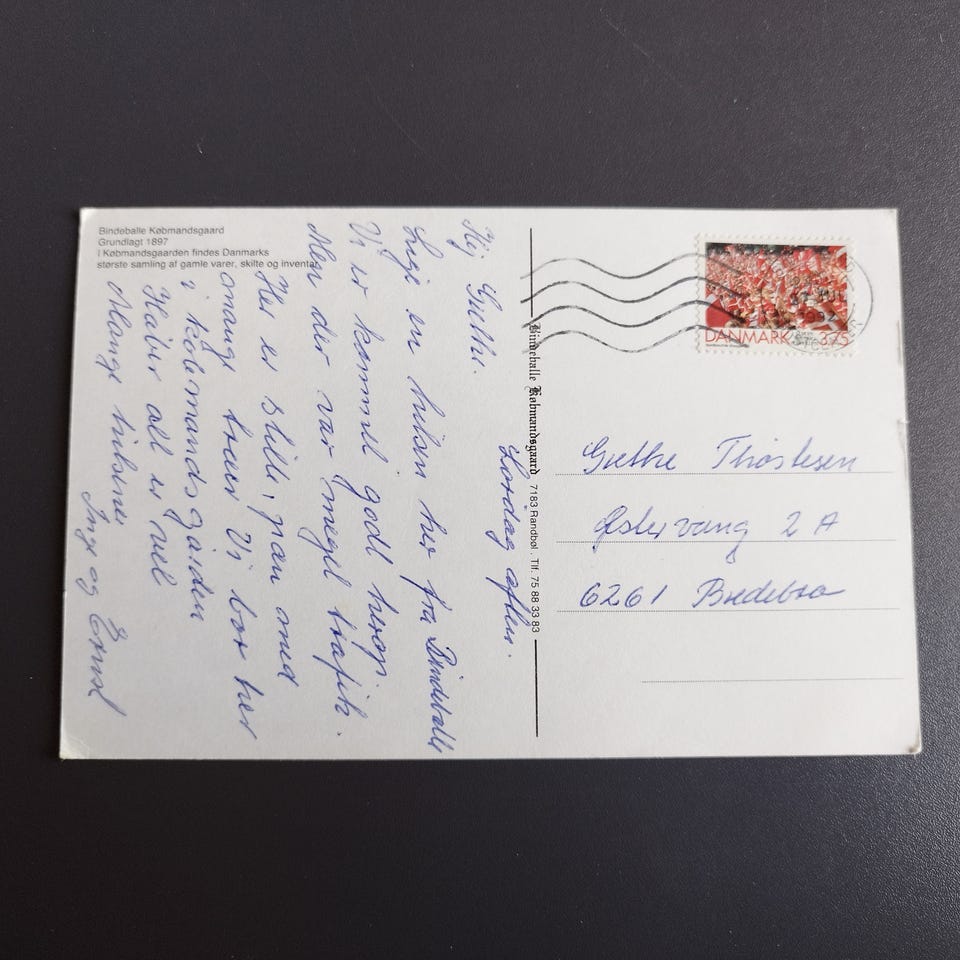 Bindeballe Købmandsgaard
Grundlagt 1897
I Købmandsgaarden findes Danmarks
største samling af gamle varer, skilte og inventar.
Lørdag aften.
Hej Grethe.
Lige en hilsen her fra Bindeballe
Vi er kommet godt herop.
Men der var meget trafik.
Her er stille, græn med
mange træer Vi bor her
i købmandsgården
Håber alt er vel
Mange hilsner
Inge og Ernst
Bindeballe Købmandsgaard 7183 Randbøl . Tlf. 75 88 33 83
DANMARK 3.75
Grethe Thostesen
Østervang 2 A
6261 Bredebro